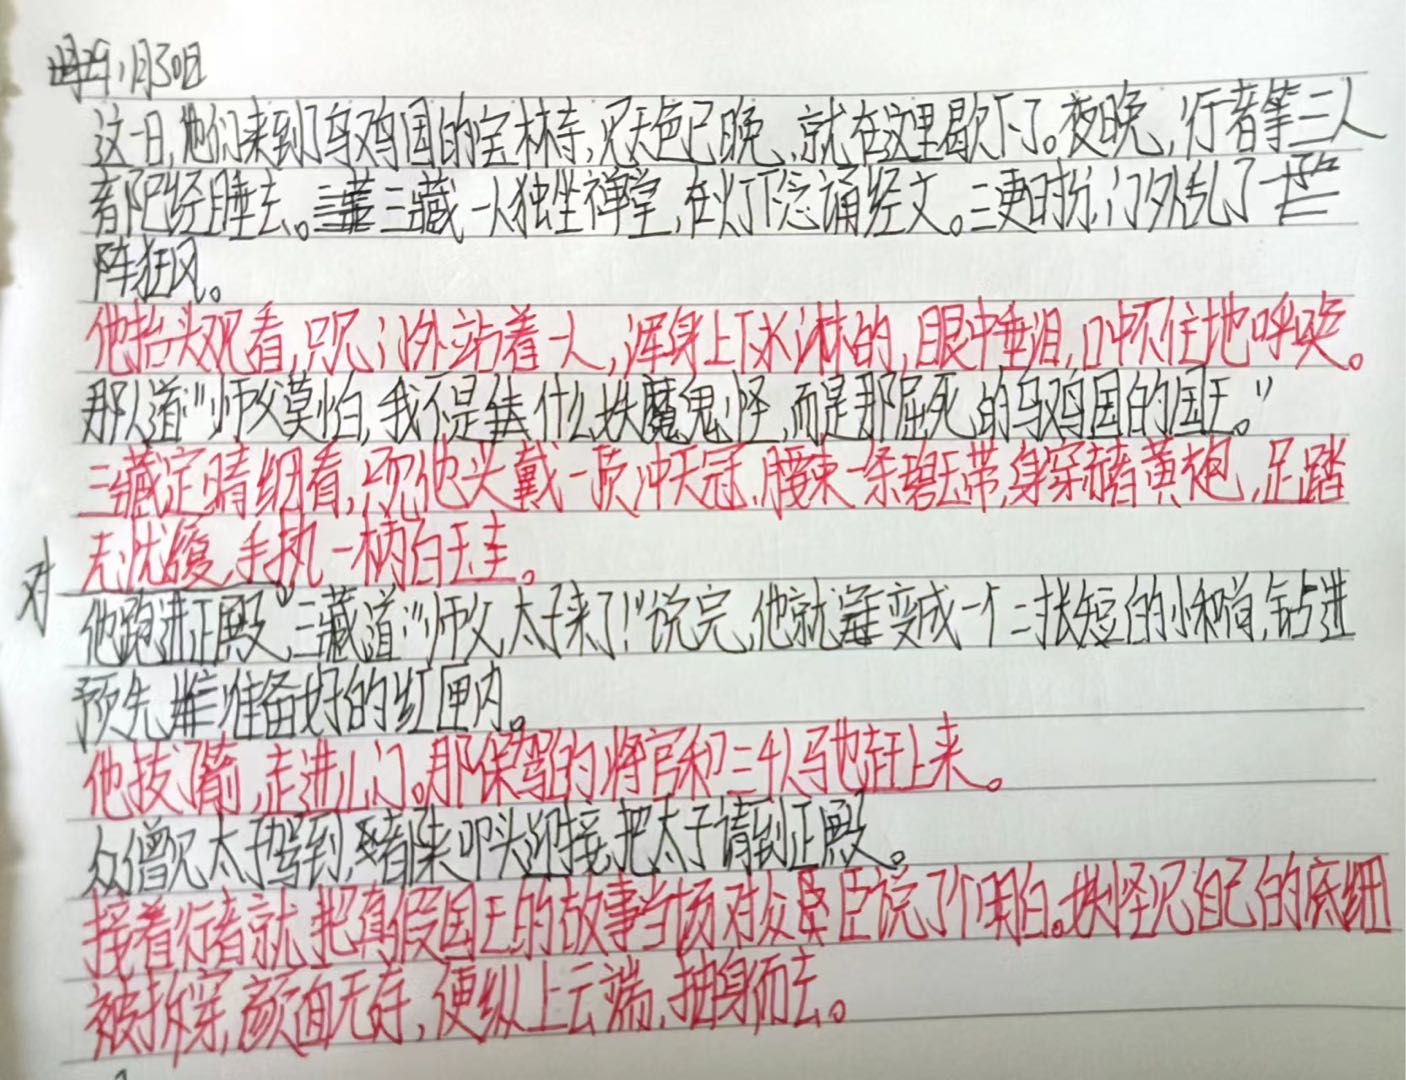 1月30日
这一日,他们来到了乌鸡国的宝林寺,见天色已晚,就在这里歇下了。夜晚,行者等三人
都已经睡去。三藏一人独坐禅堂,在灯下念诵经文。三更时分,门外乱了一
阵狂风。
他抬头观看,只见门外站着一人,浑身上下水淋的,眼中垂泪,口中不住地呼唤。
那人道:"师父莫怕,我不是什么妖魔鬼怪,而是那屈死的乌鸡国的国王。"
三藏定睛细看,只见他头戴一顶冲天冠,腰束一条碧玉带,身穿赭黄袍,足踏
无忧履,手执一柄白玉圭。
对
他跑进正殿,三藏道:"师父,太子来了!"说完,他就变成一个二张短的小和尚,钻进
预先准备好的红匣内。
他拔了箭,走进山门。那保驾的将官和三千人马也赶上来。
众僧见太子驾到,都来叩头迎接,把太子请到正殿。
接着行者就把真假国王的故事当场对众臣说了个明白。妖怪见自己的底细
被拆穿,颜面无存,便纵上云端,抽身而去。